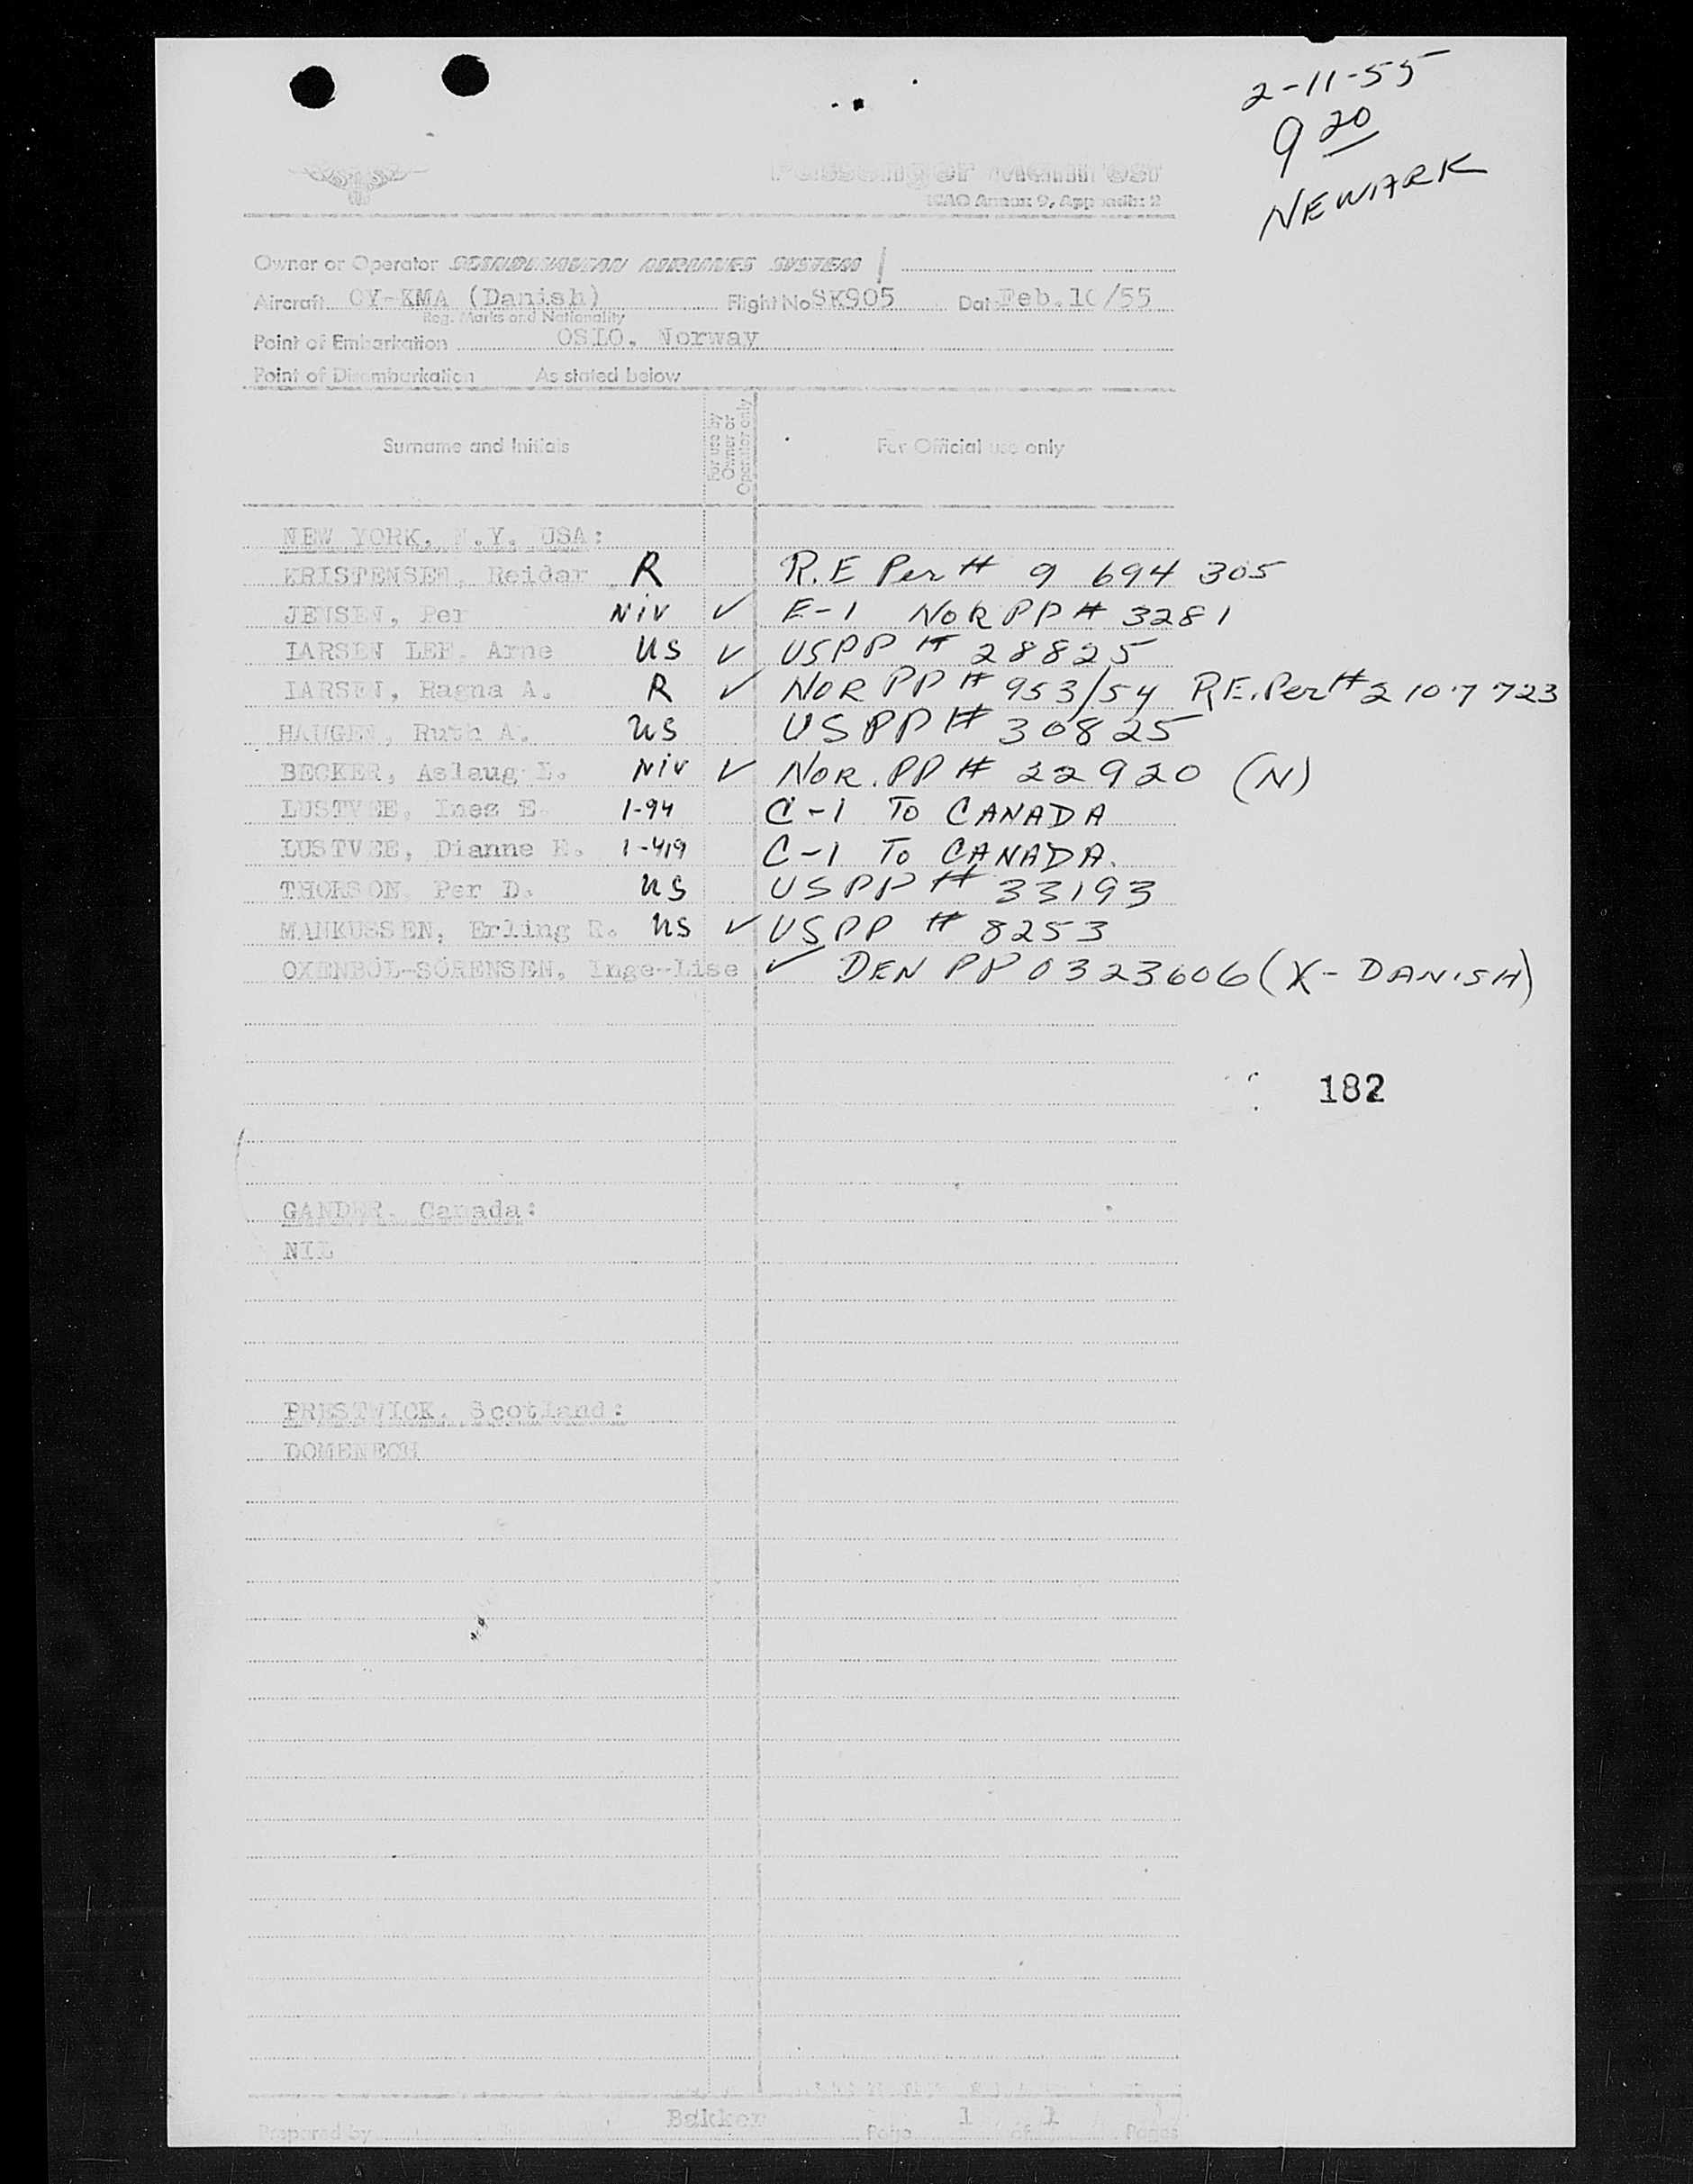 2-11-55
9 20
NEWARK
Passenger Manifest
ICAO Annex 9, Appendix 2
Owner or Operator SCANDINAVIAN AIRLINES SYSTEM
Aircraft OY-KMA (Danish) Flight No SK905 Date Feb. 10/55
Reg. Marks and Nationality
Point of Embarkation OSLO, Norway
Point of Disembarkation As stated below
Surname and Initials For use by Owner or Operator only For Official use only
NEW YORK, N.Y. USA:
KRISTENSEN, Reidar R R.E Per # 9 694 305
JENSEN, Per NIV ✓ E-1 NOR PP # 3281
LARSEN LEE, Arne US ✓ USPP # 28825
LARSEN, Ragna A. R ✓ NOR PP # 953/54 R.E. Per # 2 107 723
HAUGEN, Ruth A. US US PP # 30825
BECKER, Aslaug NIV ✓ NOR. PP # 22920 (N)
LUSTVEE, Ines E. 1-94 C-1 TO CANADA
LUSTVEE, Dianne H. 1-419 C-1 TO CANADA.
THORSON, Per D. US USPP # 33193
MARKUSSEN, Erling R. US ✓ USPP # 8253
OXENBÖL-SÖRENSEN, Inge-Lise ✓ DEN PP 0323606 (X-DANISH)
182
GANDER, Canada:
NIL
PRESTWICK, Scotland:
DOMENECH
Prepared by Bakken Page 1 of 1 Pages